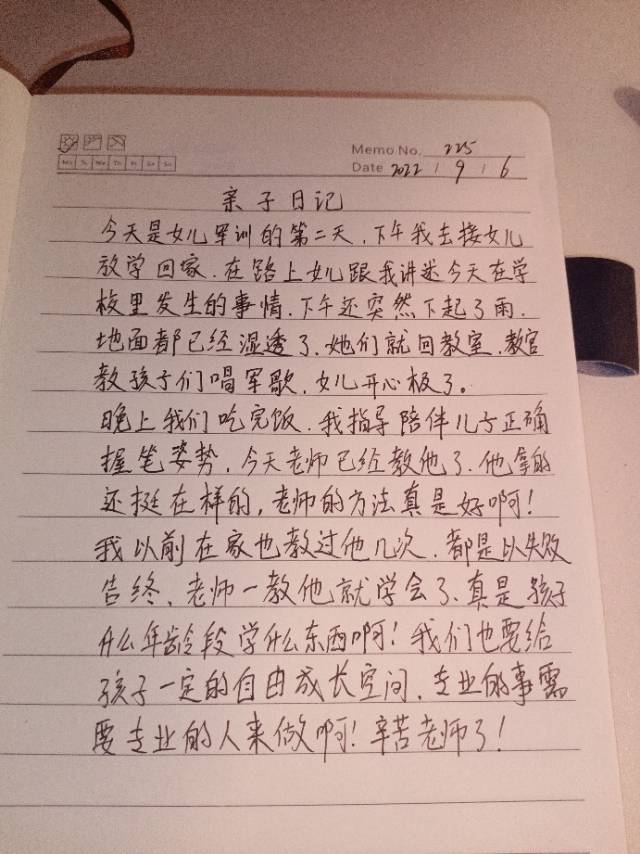 Memo No. 225
Mo Tu We Th Fr Sa Su
Date 2022 / 9 / 6
亲子日记
今天是女儿军训的第二天，下午我去接女儿
放学回家，在路上女儿跟我讲述今天在学
校里发生的事情，下午还突然下起了雨，
地面都已经湿透了，她们就回教室，教官
教孩子们唱军歌，女儿开心极了。
晚上我们吃完饭，我指导陪伴儿子正确
握笔姿势，今天老师已经教他了，他拿的
还挺在样的，老师的方法真是好啊！
我以前在家也教过他几次，都是以失败
告终，老师一教他就学会了，真是孩子
什么年龄段学什么东西啊！我们也要给
孩子一定的自由成长空间，专业的事需
要专业的人来做啊！辛苦老师了！